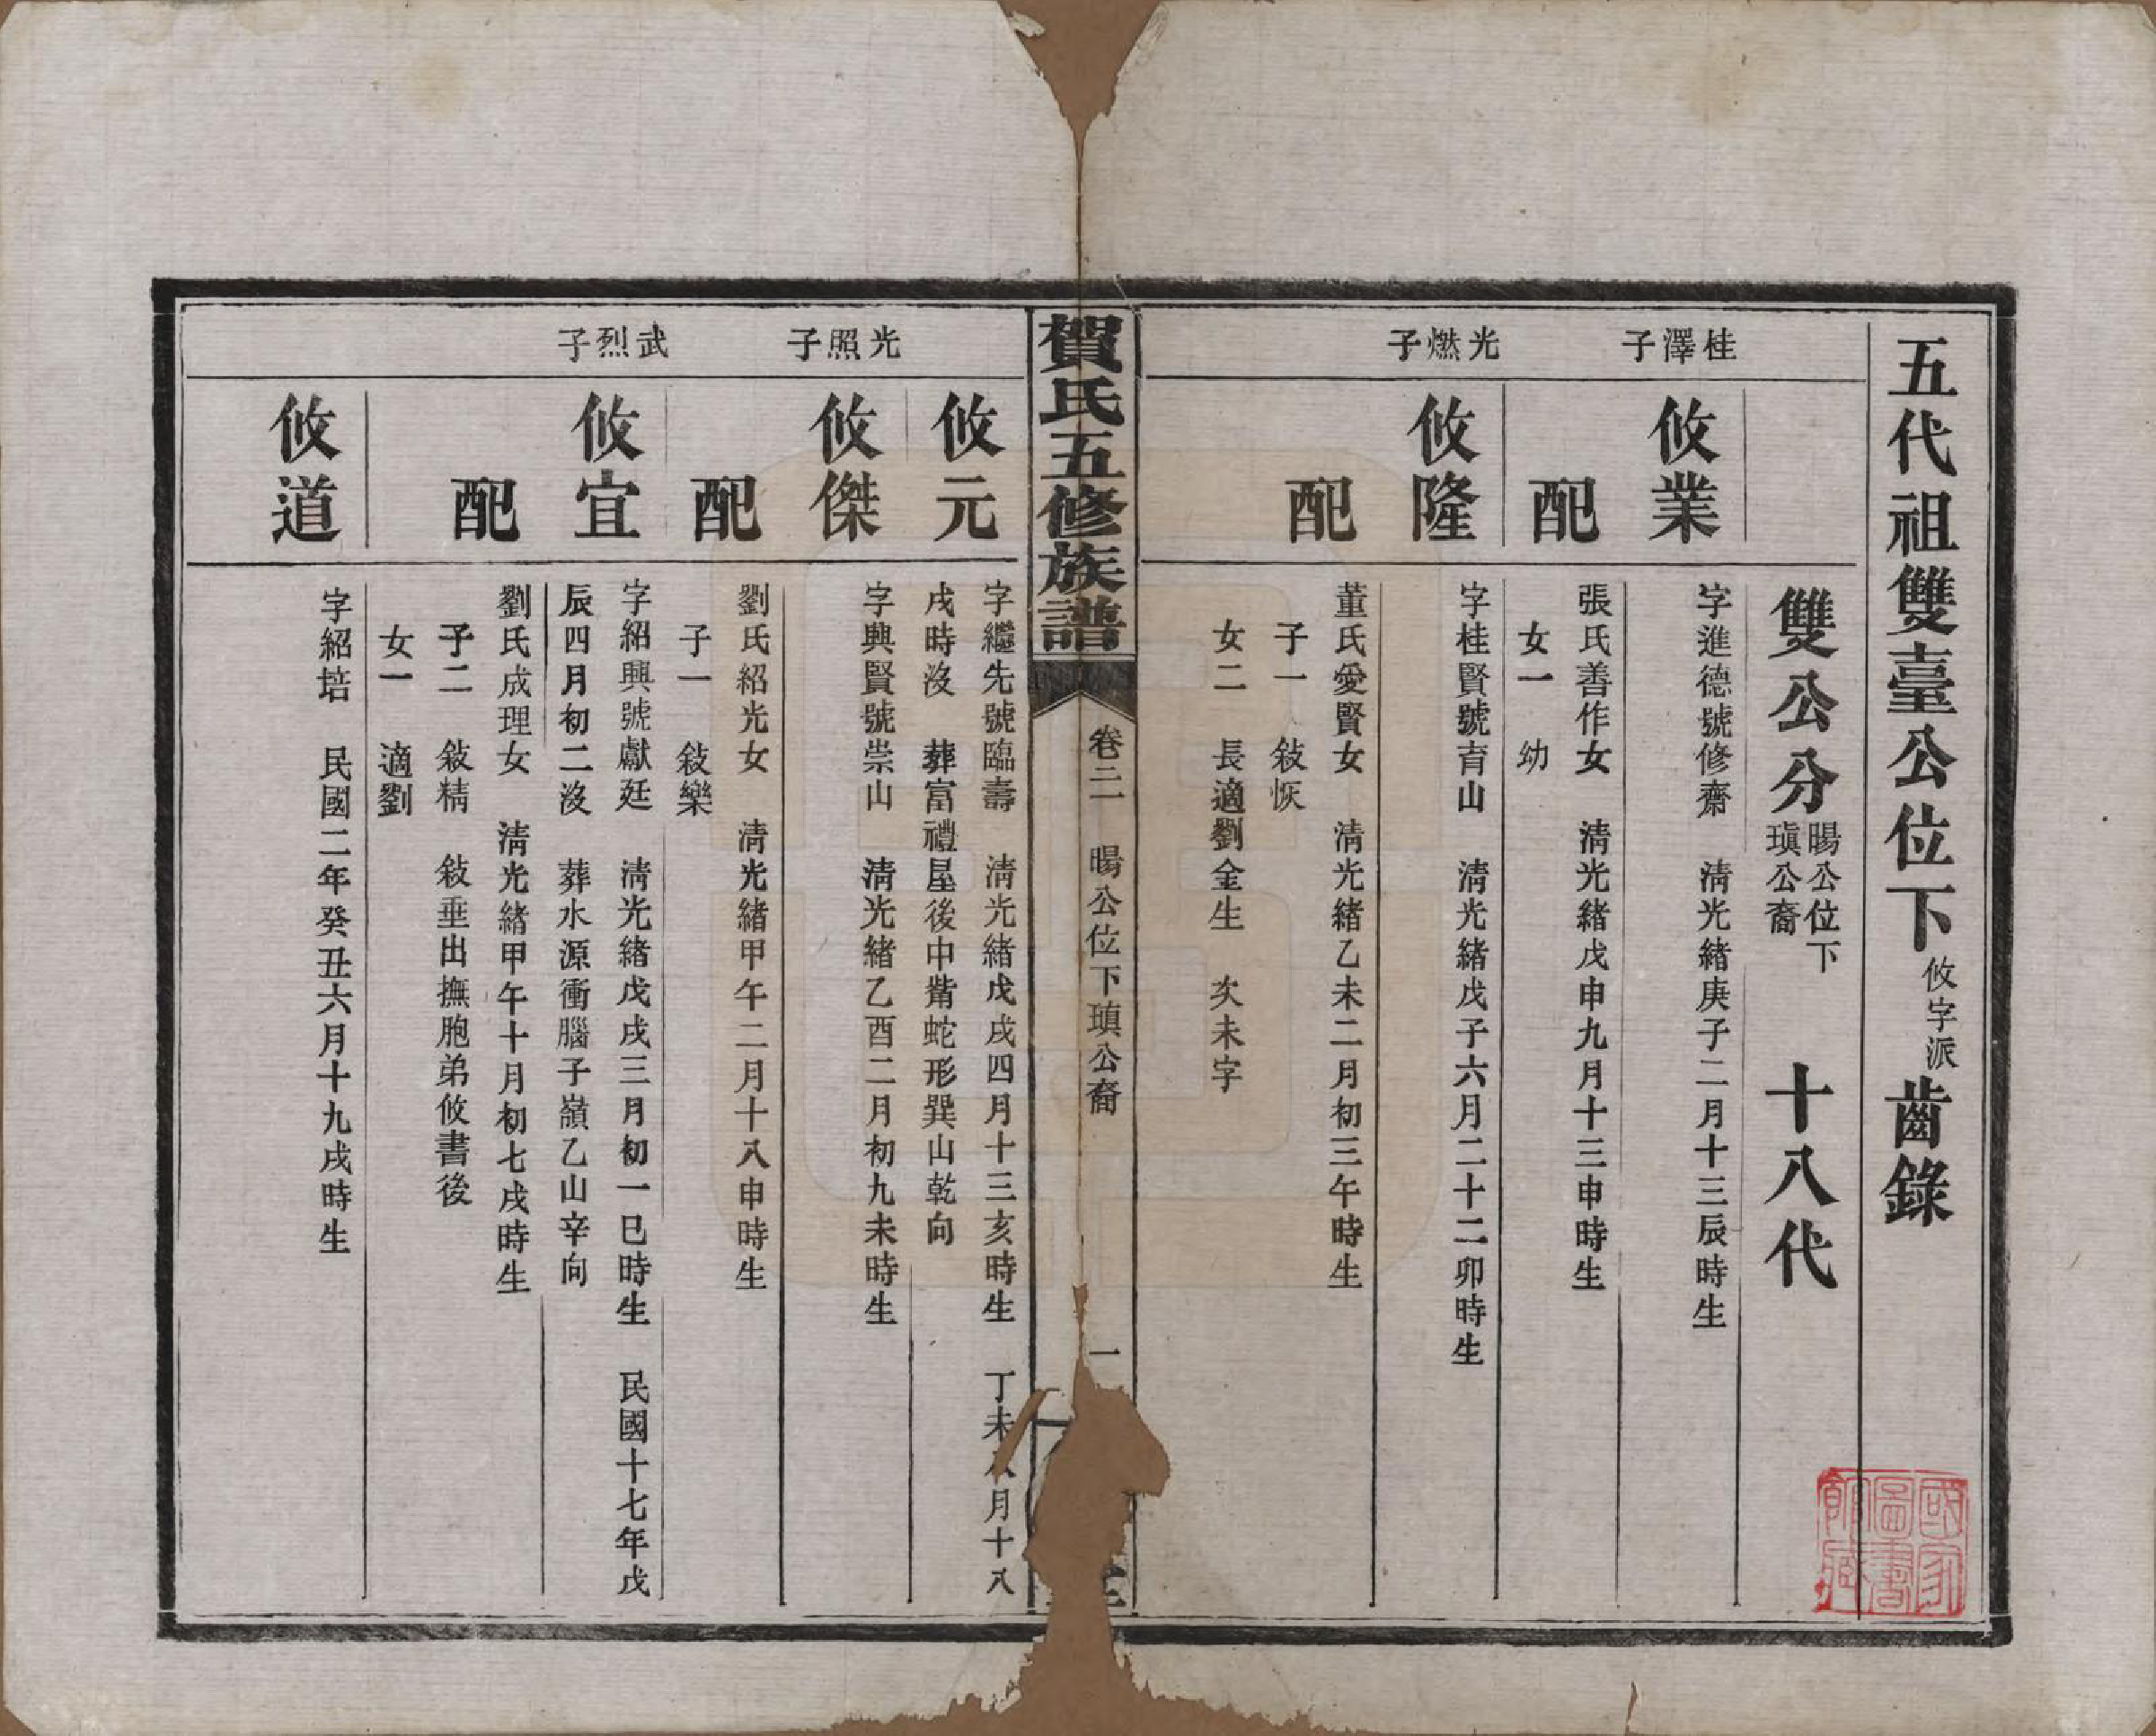 五代祖雙臺公位下攸字派齒錄
雙公分暘公位下瑱公裔 十八代
桂澤子
攸業
字進德號修齋 淸光緒庚子二月十三辰時生
配
張氏善作女 淸光緒戊申九月十三申時生
女一 幼
光燃子
攸隆
字桂賢號育山 淸光緒戊子六月二十二卯時生
配
董氏愛賢女 淸光緒乙未二月初三午時生
子一 敍恢
女二 長適劉金生 次未字
賀氏五修族譜
卷二 暘公位下瑱公裔 一
攸元
字繼先號臨壽 淸光緒戊戌四月十三亥時生 丁未八月十八
戌時沒 葬富禮屋後中觜蛇形巽山乾向
光照子
攸傑
字興賢號崇山 淸光緒乙酉二月初九未時生
配
劉氏紹光女 淸光緒甲午二月十八申時生
子一 敍樂
武烈子
攸宜
字紹興號獻廷 淸光緒戊戌三月初一巳時生 民國十七年戊
辰四月初二沒 葬水源衝腦子嶺乙山辛向
配
劉氏成理女 淸光緒甲午十月初七戌時生
子二 敍精 敍垂出撫胞弟攸書後
女一 適劉
攸道
字紹培 民國二年癸丑六月十九戌時生
國家圖書館藏